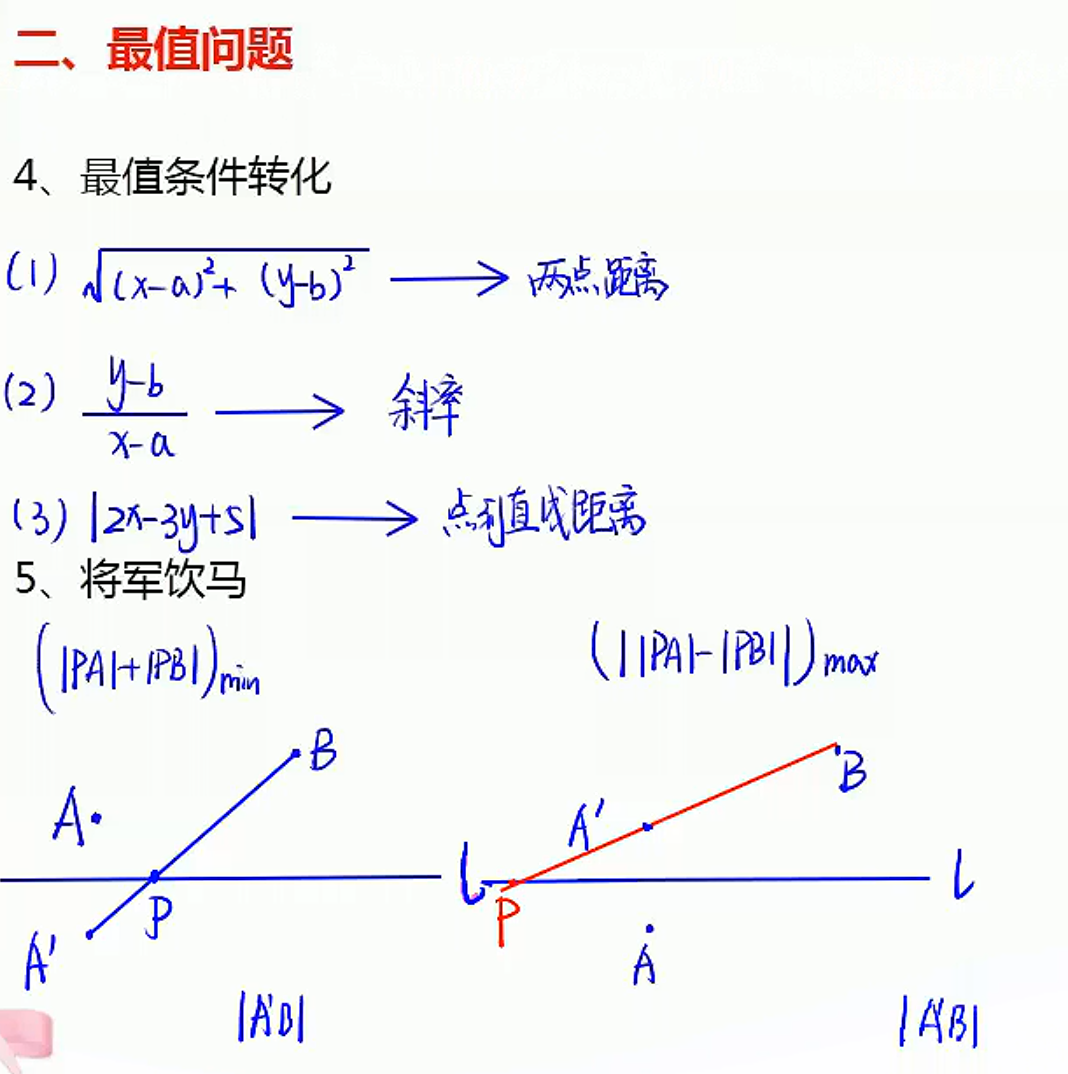 二、最值问题
4、最值条件转化
(1) √((x-a)²+(y-b)²) → 两点距离
(2) (y-b)/(x-a) → 斜率
(3) |2x-3y+5| → 点到直线距离
5、将军饮马
(|PA|+|PB|)min
(||PA|-|PB||)max
B
A
l
P
A'
|A'B|
B
A'
l
P
A
|A'B|